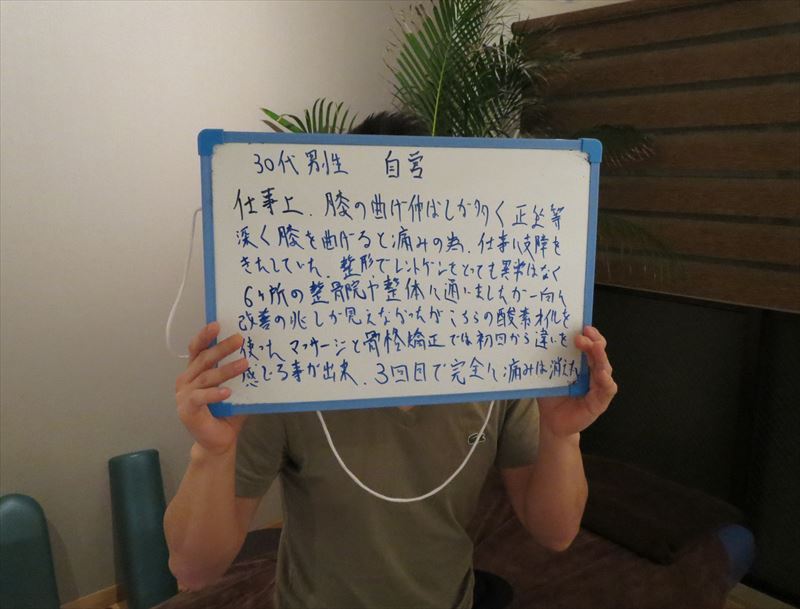 30代男性 自営
仕事上、膝の曲げ伸ばしが多く正坐等
深く膝を曲げると痛みの為、仕事に支障を
きたしていた。整形でレントゲンをとっても異常はなく
6ヶ所の整骨院や整体に通いましたが一向に
改善の兆しが見えなかったがこちらの酸素オイルを
使ったマッサージと骨格矯正では初回から違いを
感じる事が出来、3回目で完全に痛みは消えた